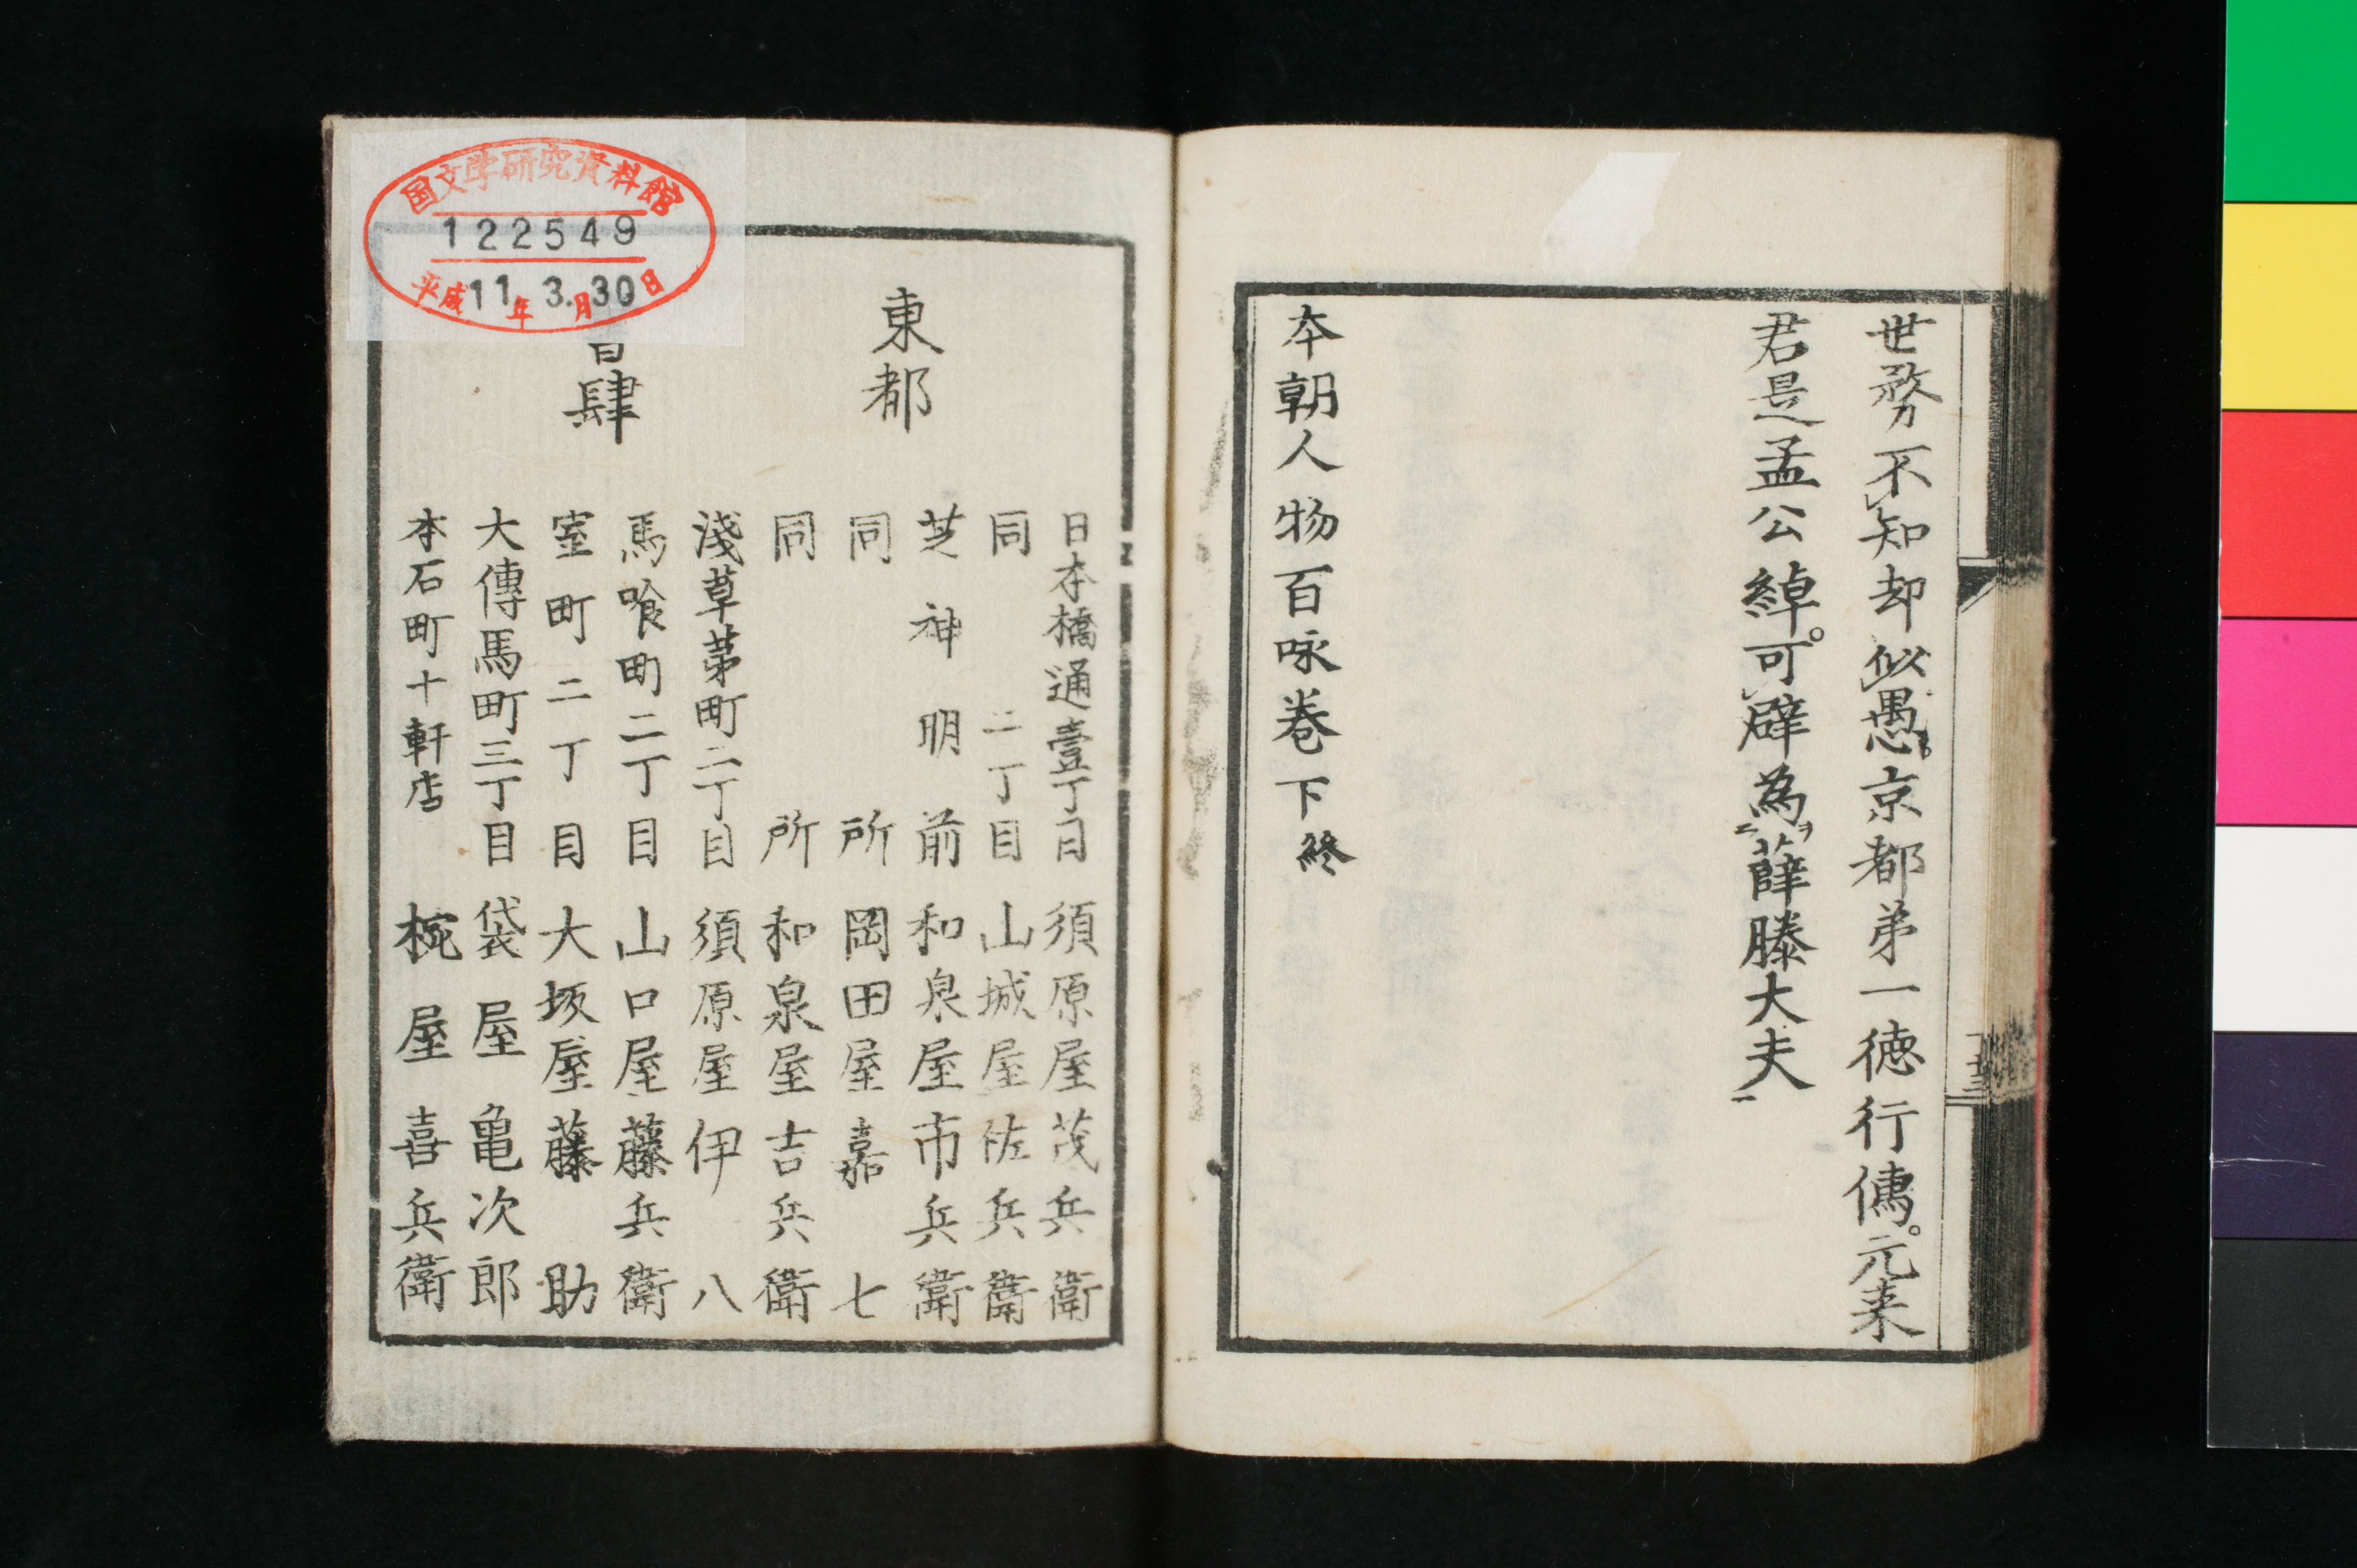 世務不知却似愚。京都第一徳行傳。元来
君是孟公綽。可辟為薛滕大夫
本朝人物百咏巻下終
東都
書肆
日本橋通壹丁目 須原屋茂兵衛
同 二丁目 山城屋佐兵衛
芝神明前 和泉屋市兵衛
同所 岡田屋嘉七
同所 和泉屋吉兵衛
淺草茅町二丁目 須原屋伊八
馬喰町二丁目 山口屋藤兵衛
室町二丁目 大坂屋藤助
大傳馬町三丁目 袋屋亀次郎
本石町十軒店 椀屋喜兵衛
国文学研究資料館
122549
平成11年3.月30日